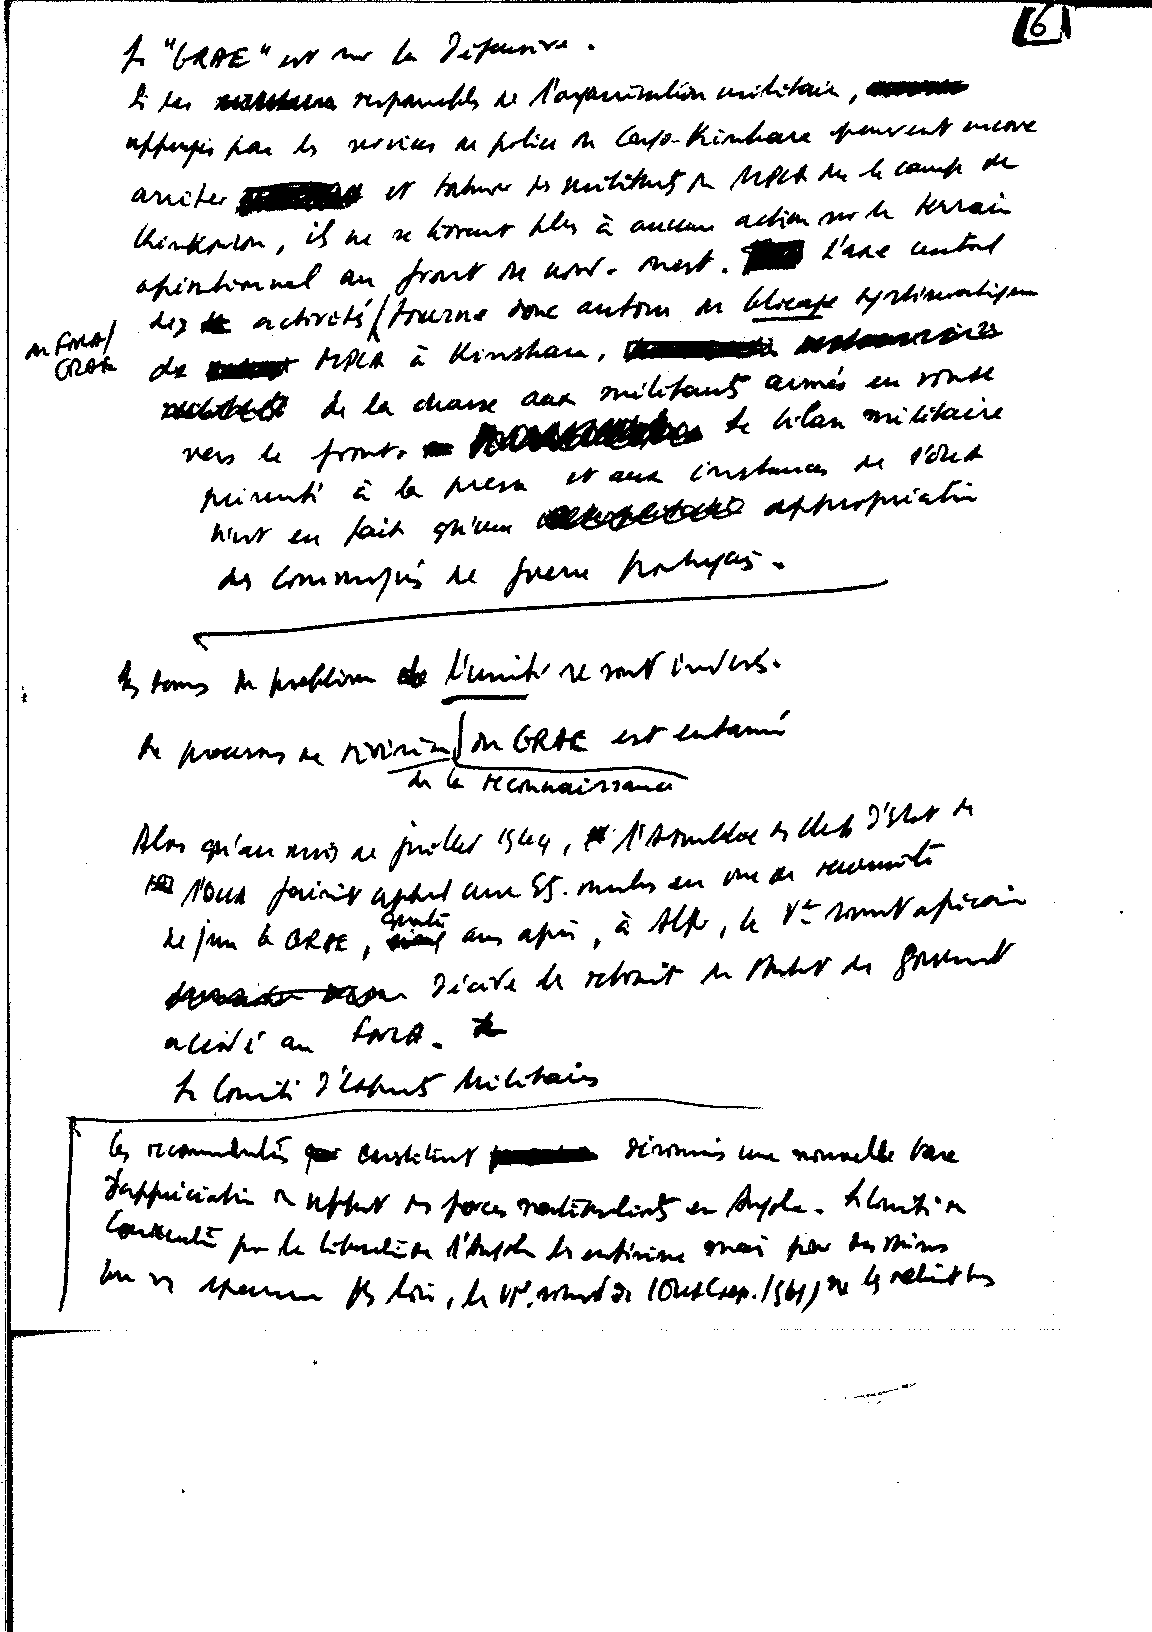 6
Le "GRAE" est sur la défensive.
Si les responsables de l'organisation militaire,
appuyés par les services de police du Congo-Kinshasa peuvent encore
arrêter et torturer des militants du MPLA dans le camp de
Kinkouzou, ils ne se livrent plus à aucune action sur le terrain
opérationnel au front du nord-ouest. L'axe central
des activités tourne donc autour du blocage systématique
du FNLA/
GRAE
du MPLA à Kinshasa,
de la chasse aux militants armés en route
vers le front. Le bilan militaire
présenté à la presse et aux instances de l'OUA
n'est en fait qu'une appropriation
des communiqués de guerre portugais.
Les termes du problème de l'unité se sont inversés.
Le processus de révision du GRAE est entamé
de la reconnaissance
Alors qu'au mois de juillet 1964, l'Assemblée des Chefs d'Etat de
l'OUA faisait appel aux Etats membres en vue de reconnaître
de jure le GRAE, quatre ans après, à Alger, le Ve sommet africain
décide le retrait du statut de gouvernement
accordé au FNLA.
Le Comité d'Experts Militaires
Ces recommandations constituent désormais une nouvelle base
d'appréciation du rapport des forces nationalistes en Angola. Le Comité de
Coordination pour la libération de l'Angola les entérine mais
plus loin, le VIe sommet de l'OUA (sep. 1969)